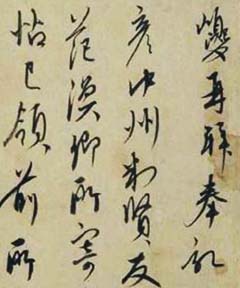 巙再拜奉記
彥中州判賢友
范漢卿所寄
帖已領前所